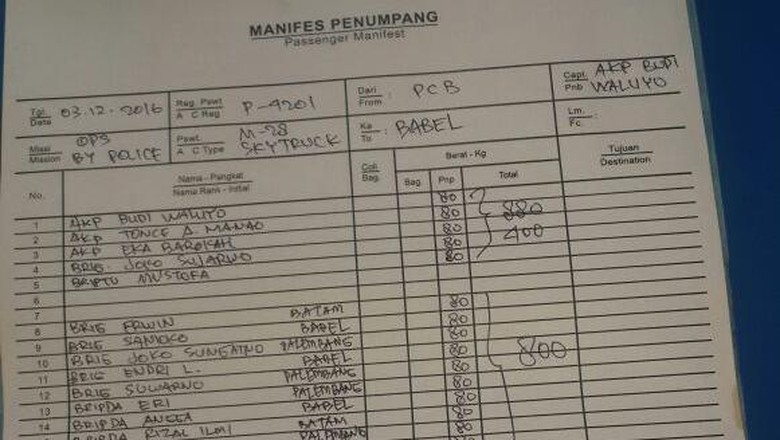 MANIFES PENUMPANG
Passenger Manifest
Tgl. Date : 03.12.2016
Reg. Pswt A C Reg : P-4201
Dari From : PCB
Capt. Pnb AKP BUDI WALUYO
Misi Mission : OPS BY POLICE
Pswt. A C Type : M-28 SKYTRUCK
Ke To : BABEL
Lm. Fc. :
No.
Nama - Pangkat
Nama Rank - Initial
Coli Bag.
Berat - Kg
Bag Pnp Total
Tujuan
Destination
1 AKP BUDI WALUYO 80
2 AKP TONCE A. MANAO 80
3 AKP EKA BAROKAH 80
4 BRIG. JOKO SUJARWO 80
5 BRIPTU MUSTOFA 80
400
6
7
8 BRIG ERWIN BATAM 80
9 BRIG SAMOKO BABEL 80
10 BRIG JOKO SUNGATNO PALEMBANG 80
11 BRIG ENDRI L. BABEL 80
12 BRIG SUWARNO PALEMBANG 80
13 BRIPDA ERI PALEMBANG 80
14 BRIPDA ANGGA BABEL 80
BRIPDA RIZAL ILMI BATAM 80
PALEMBANG
800